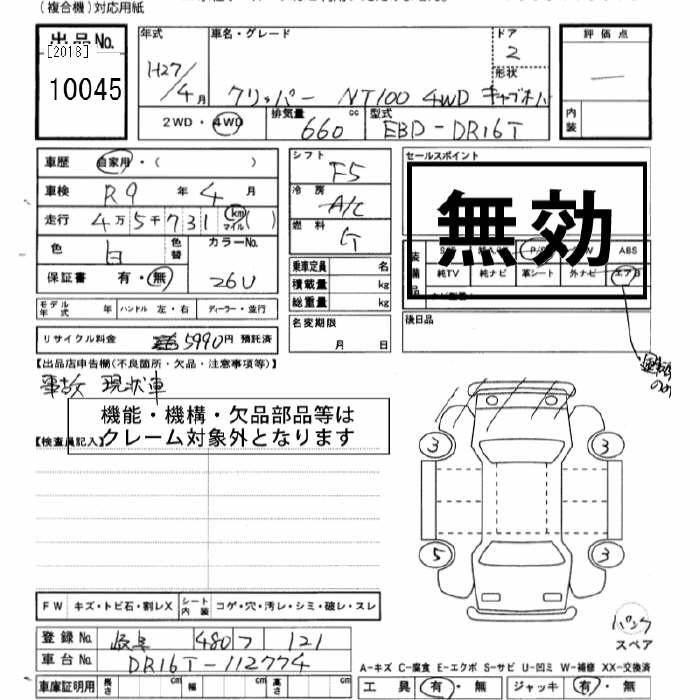 (複合機)対応用紙
出品No.
[2018]
10045
年式
H27/4月
車名・グレード
クリッパー NT100 4WD
ドア
2
形状
キャブオーバ
評価点
内装
2WD・4WD
排気量
660 cc
型式
EBD-DR16T
車歴 自家用・( )
車検 R9年4月
走行 4万5千731 km マイル ( )
色 白 色替
カラーNo.
26U
保証書 有・無
モデル年式 年 ハンドル 左・右 ディーラー・並行
リサイクル料金 5990円 預託済
シフト
F5
冷房
A/C
燃料
G
乗車定員 名
積載量 kg
総重量 kg
名変期限
月 日
セールスポイント
無効
ABS
純TV 純ナビ 革シート 外ナビ エアB
後日品
【出品店申告欄(不良箇所・欠品・注意事項等)】
事故 現状車
機能・機構・欠品部品等は
クレーム対象外となります
【検査員記入】
3 3
5 3
パンク
スペア
FW キズ・トビ石・割レX シート内装 コゲ・穴・汚レ・シミ・破レ・スレ
登録No. 岐阜 480 フ 121
車台No. DR16T-112774
車庫証明用 長さ cm 幅 cm 高さ cm
A-キズ C-腐食 E-エクボ S-サビ U-凹ミ W-補修 XX-交換済
工具 有・無 ジャッキ 有・無